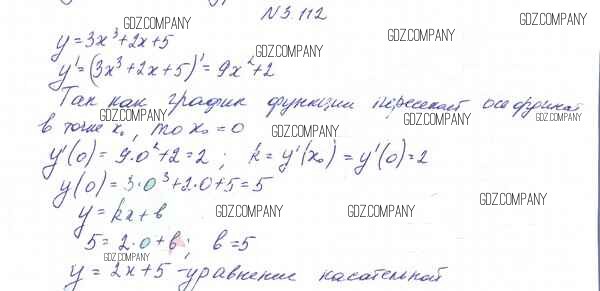 N 3.112
y = 3x³ + 2x + 5
y' = (3x³ + 2x + 5)' = 9x² + 2
Так как график функции пересекает ось ординат
в точке x₀, то x₀ = 0
y'(0) = 9·0² + 2 = 2 ; k = y'(x₀) = y'(0) = 2
y(0) = 3·0³ + 2·0 + 5 = 5
y = kx + b
5 = 2·0 + b; b = 5
y = 2x + 5 - уравнение касательной
GDZ.COMPANY
GDZ.COMPANY
GDZ.COMPANY
GDZ.COMPANY
GDZ.COMPANY
GDZ.COMPANY
GDZ.COMPANY
GDZ.COMPANY
GDZ.COMPANY
GDZ.COMPANY
GDZ.COMPANY
GDZ.COMPANY
GDZ.COMPANY